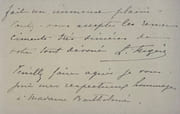 fait un immense plaisir.
Veuillez accepter les remer-
ciments très sincères de
votre tout dévoué
Veuillez faire agréer je vous
prie mes respectueux hommages
à Madame Bartholomé